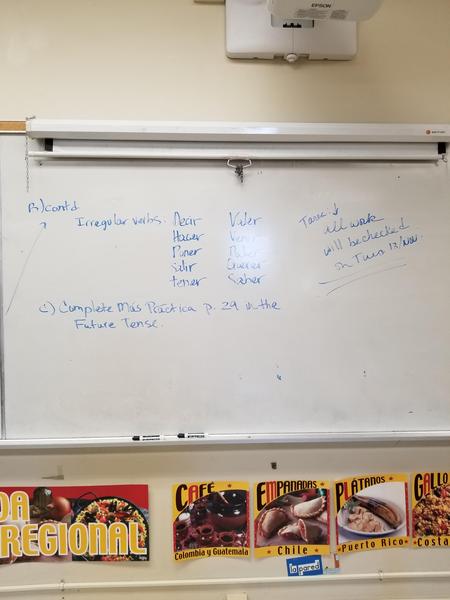 EPSON
B) contd
Irregular verbs: Decir Valer
Hacer Venir
Poner Poder
Salir Querer
tener Saber
Tarea:
all work
will be checked
on Tues 13/Nov.
C) Complete Más Práctica p. 29 in the
Future Tense.
DA
REGIONAL
CAFÉ
Colombia y Guatemala
EMPANADAS
Chile
PLÁTANOS
Puerto Rico
GALLO
Costa
la pared